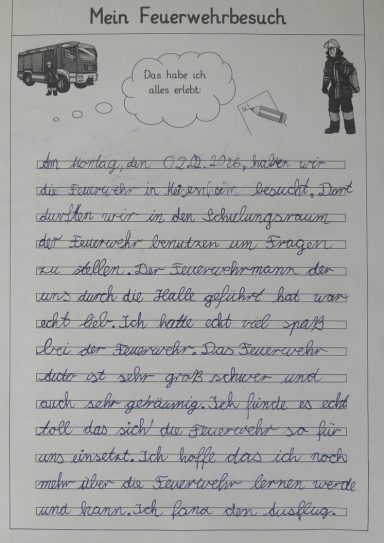 Mein Feuerwehrbesuch
Das habe ich
alles erlebt:
Am Montag, den 02.02.2026, haben wir
die Feuerwehr in Meisenheim besucht. Dort
durften wir in den Schulungsraum
der Feuerwehr benutzen um Fragen
zu stellen. Der Feuerwehrmann der
uns durch die Halle geführt hat war
echt lieb. Ich hatte echt viel spaß
bei der Feuerwehr. Das Feuerwehr
Auto ist sehr groß schwer und
auch sehr geräumig. Ich finde es echt
toll das sich die Feuerwehr so für
uns einsetzt. Ich hoffe das ich noch
mehr über die Feuerwehr lernen werde
und kann. Ich fand den Ausflug.